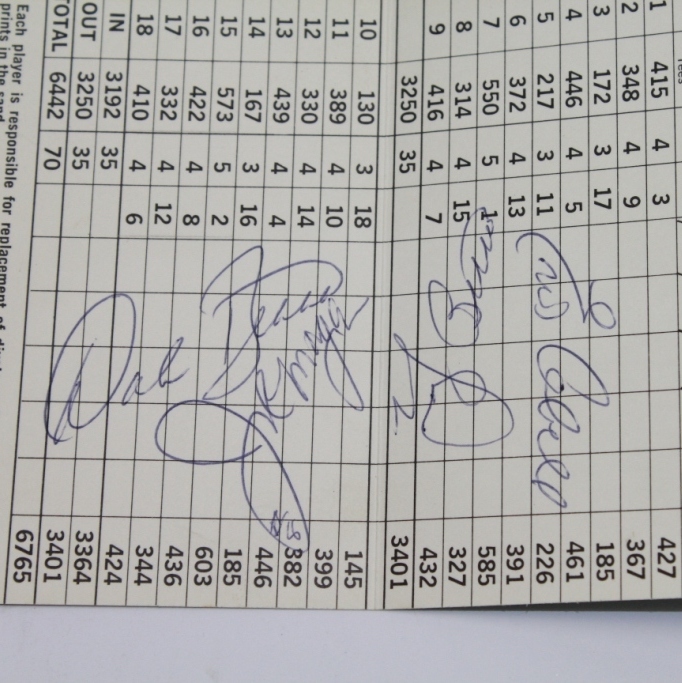 1 415 4 3 427
2 348 4 9 367
3 172 3 17 185
4 446 4 5 461
5 217 3 11 226
6 372 4 13 391
7 550 5 1 585
8 314 4 15 327
9 416 4 7 432
3250 35 3401
10 130 3 18 145
11 389 4 10 399
12 330 4 14 382
13 439 4 4 446
14 167 3 16 185
15 573 5 2 603
16 422 4 8 436
17 332 4 12 344
18 410 4 6 424
IN 3192 35 3364
OUT 3250 35 3401
TOTAL 6442 70 6765
Each player is responsible for replacement of
prints in the sand